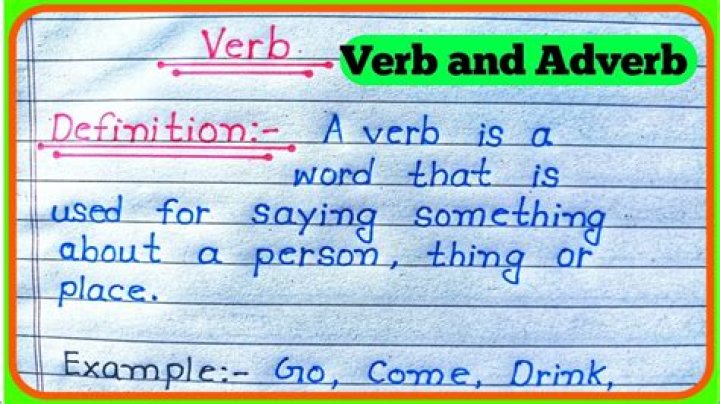 Verb.
Verb and Adverb
Definition:- A verb is a
word that is
used for saying something
about a person, thing or
place.
Example:- Go, Come, Drink,